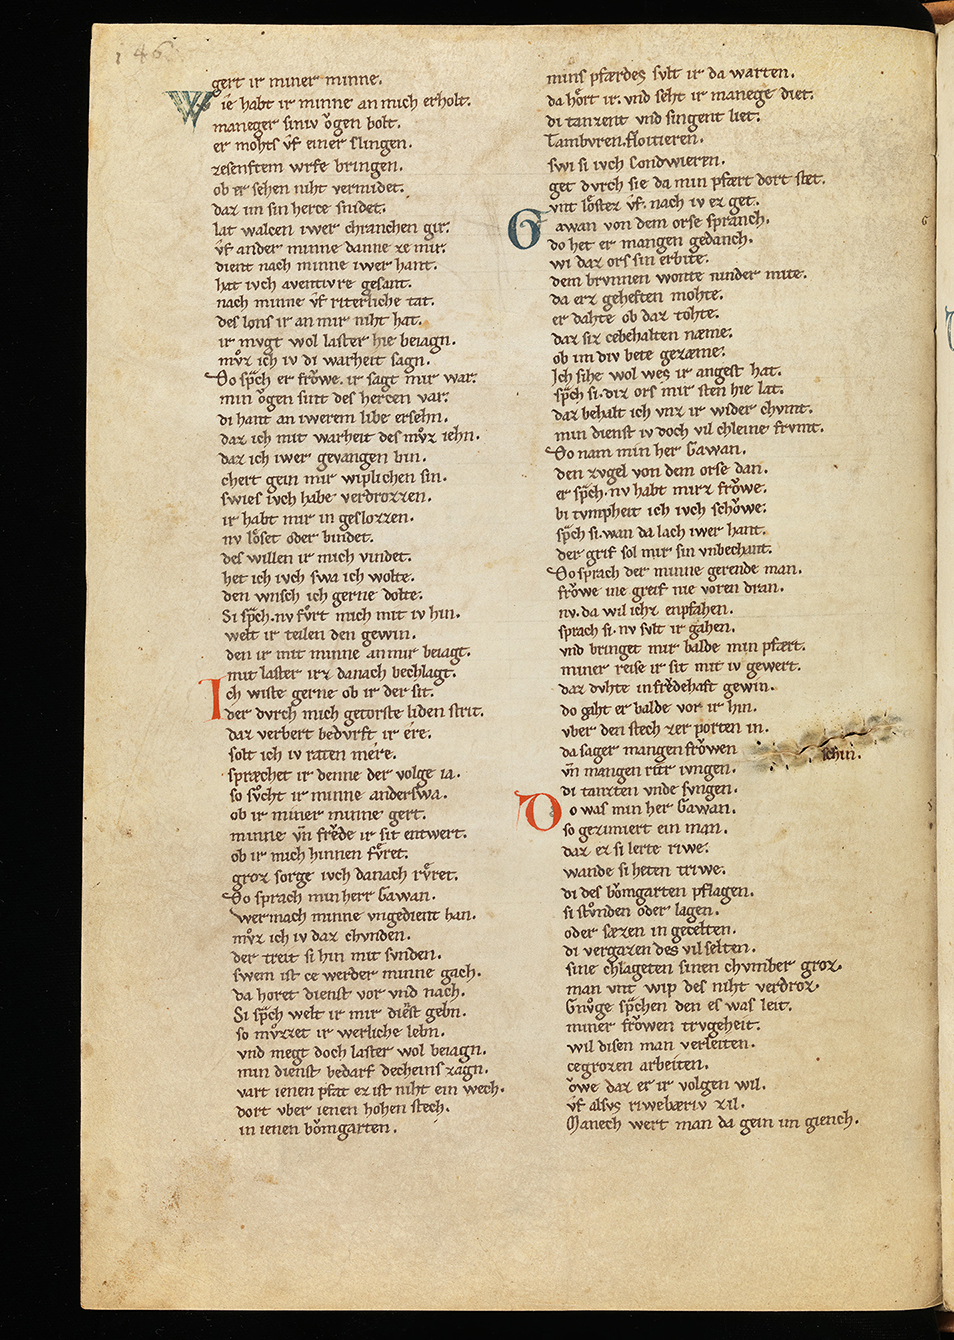 146
gert ir miner minne.
Wie habt ir minne an mich erholt.
maneger siniv ǒgen bolt.
er mohts vf einer slingen.
zesenftem wrfe bringen.
ob er sehen niht vermidet.
daz im sin herce snidet.
lat walcen iwer chranchen gir.
vf ander minne danne ze mir.
dient nach minne iwer hant.
hat ivch aventivre gesant.
nach minne vf riterliche tat.
des lons ir an mir niht hat.
ir mvgt wol laster hie beiagn.
mvͦz ich iv di warheit sagn.
Do sp̄ch er frǒwe. ir sagt mir war.
min ǒgen sint des hercen var.
di hant an iwerem libe ersehn.
daz ich mit warheit des mvͦz iehn.
daz ich iwer gevangen bin.
chert gein mir wiplichen sin.
swies ivch habe verdrozzen.
ir habt mir in geslozzen.
nv loͤset oder bindet.
des willen ir mich vindet.
het ich ivch swa ich wolte.
den wnsch ich gerne dolte.
Si sp̄ch. nv fvͦrt mich mit iv hin.
welt ir teilen den gewin.
den ir mit minne an mir beiagt.
mit laster irz danach bechlagt.
Ich wiste gerne ob ir der sit.
der dvrch mich getorste liden strit.
daz verbert bedvrft ir ere.
solt ich iv raten mere.
spræchet ir denne der volge ia.
so svͦcht ir minne anderswa.
ob ir miner minne gert.
minne vn̄ frǒde ir sit entwert.
ob ir mich hinnen fvͤret.
groz sorge ivch danach rvͤret.
Do sprach min herr Gawan.
wer mach minne vngedient han.
mvͦz ich iv daz chvnden.
der treit si hin mit svnden.
swem ist ce werder minne gach.
da horet dienst vor vnd nach.
Si sp̄ch welt ir mir diēst gebn.
so mvͦzzet ir werliche lebn.
vnd megt doch laster wol beiagn.
min dienst bedarf decheins zagn.
vart ienen pfat ez ist niht ein wech.
dort vber ienen hohen stech.
in ienen bǒmgarten.
mins pfærdes svlt ir da warten.
da hoͤrt ir. vnd seht ir manege diet.
di tanzent vnd singent liet.
Tambvren. floitieren.
swi si ivch condwieren.
get dvrch sie da min pfært dort stet.
vnt loͤstez vf. nach iv ez get.
Gawan von dem orse spranch.
do het er mangen gedanch.
wi daz ors sin erbite.
dem brvnnen wonte ninder mite.
da erz geheften mohte.
er dahte ob daz tohte.
daz siz cebehalten næme.
ob im div bete gezæme.
Ich sihe wol wes ir angest hat.
sp̄ch si. diz ors mir sten hie lat.
daz behalt ich vnz ir wider chvmt.
min dienst iv doch vil chleine frvmt.
Do nam min her Gawan.
den zvgel von dem orse dan.
er sp̄ch. nv habt mirz frǒwe.
bi tvmpheit ich ivch schǒwe.
sp̄ch si. wan da lach iwer hant.
der grif sol mir sin vnbechant.
Do sprach der minne gerende man.
frǒwe ine greif nie voren dran.
nv. da wil ichz enpfahen.
sprach si. nv svlt ir gahen.
vnd bringet mir balde min pfært.
miner reise ir sit mit iv gewert.
daz dvhte in frǒdehaft gewin.
do gaht er balde vor ir hin.
vber den stech zer porten in.
da sager mangen frǒwen schin.
vn̄ mangen ritr ivngen.
di tanzten vnde svngen.
Do was min her Gawan.
so gezimiert ein man.
daz ez si lerte riwe.
wande si heten triwe.
di des bǒmgarten pflagen.
si stvͦnden oder lagen.
oder sæzen in gecelten.
di vergazen des vil selten.
sine chlageten sinen chvmber groz.
man vnt wip des niht verdroz.
Gnvͦge sp̄chen den es was leit.
miner frǒwen trvgeheit.
wil disen man verleiten.
cegrozen arbeiten.
ǒwe daz er ir volgen wil.
vf alsvs riwebæriv zil.
Manech wert man da gein im giench.